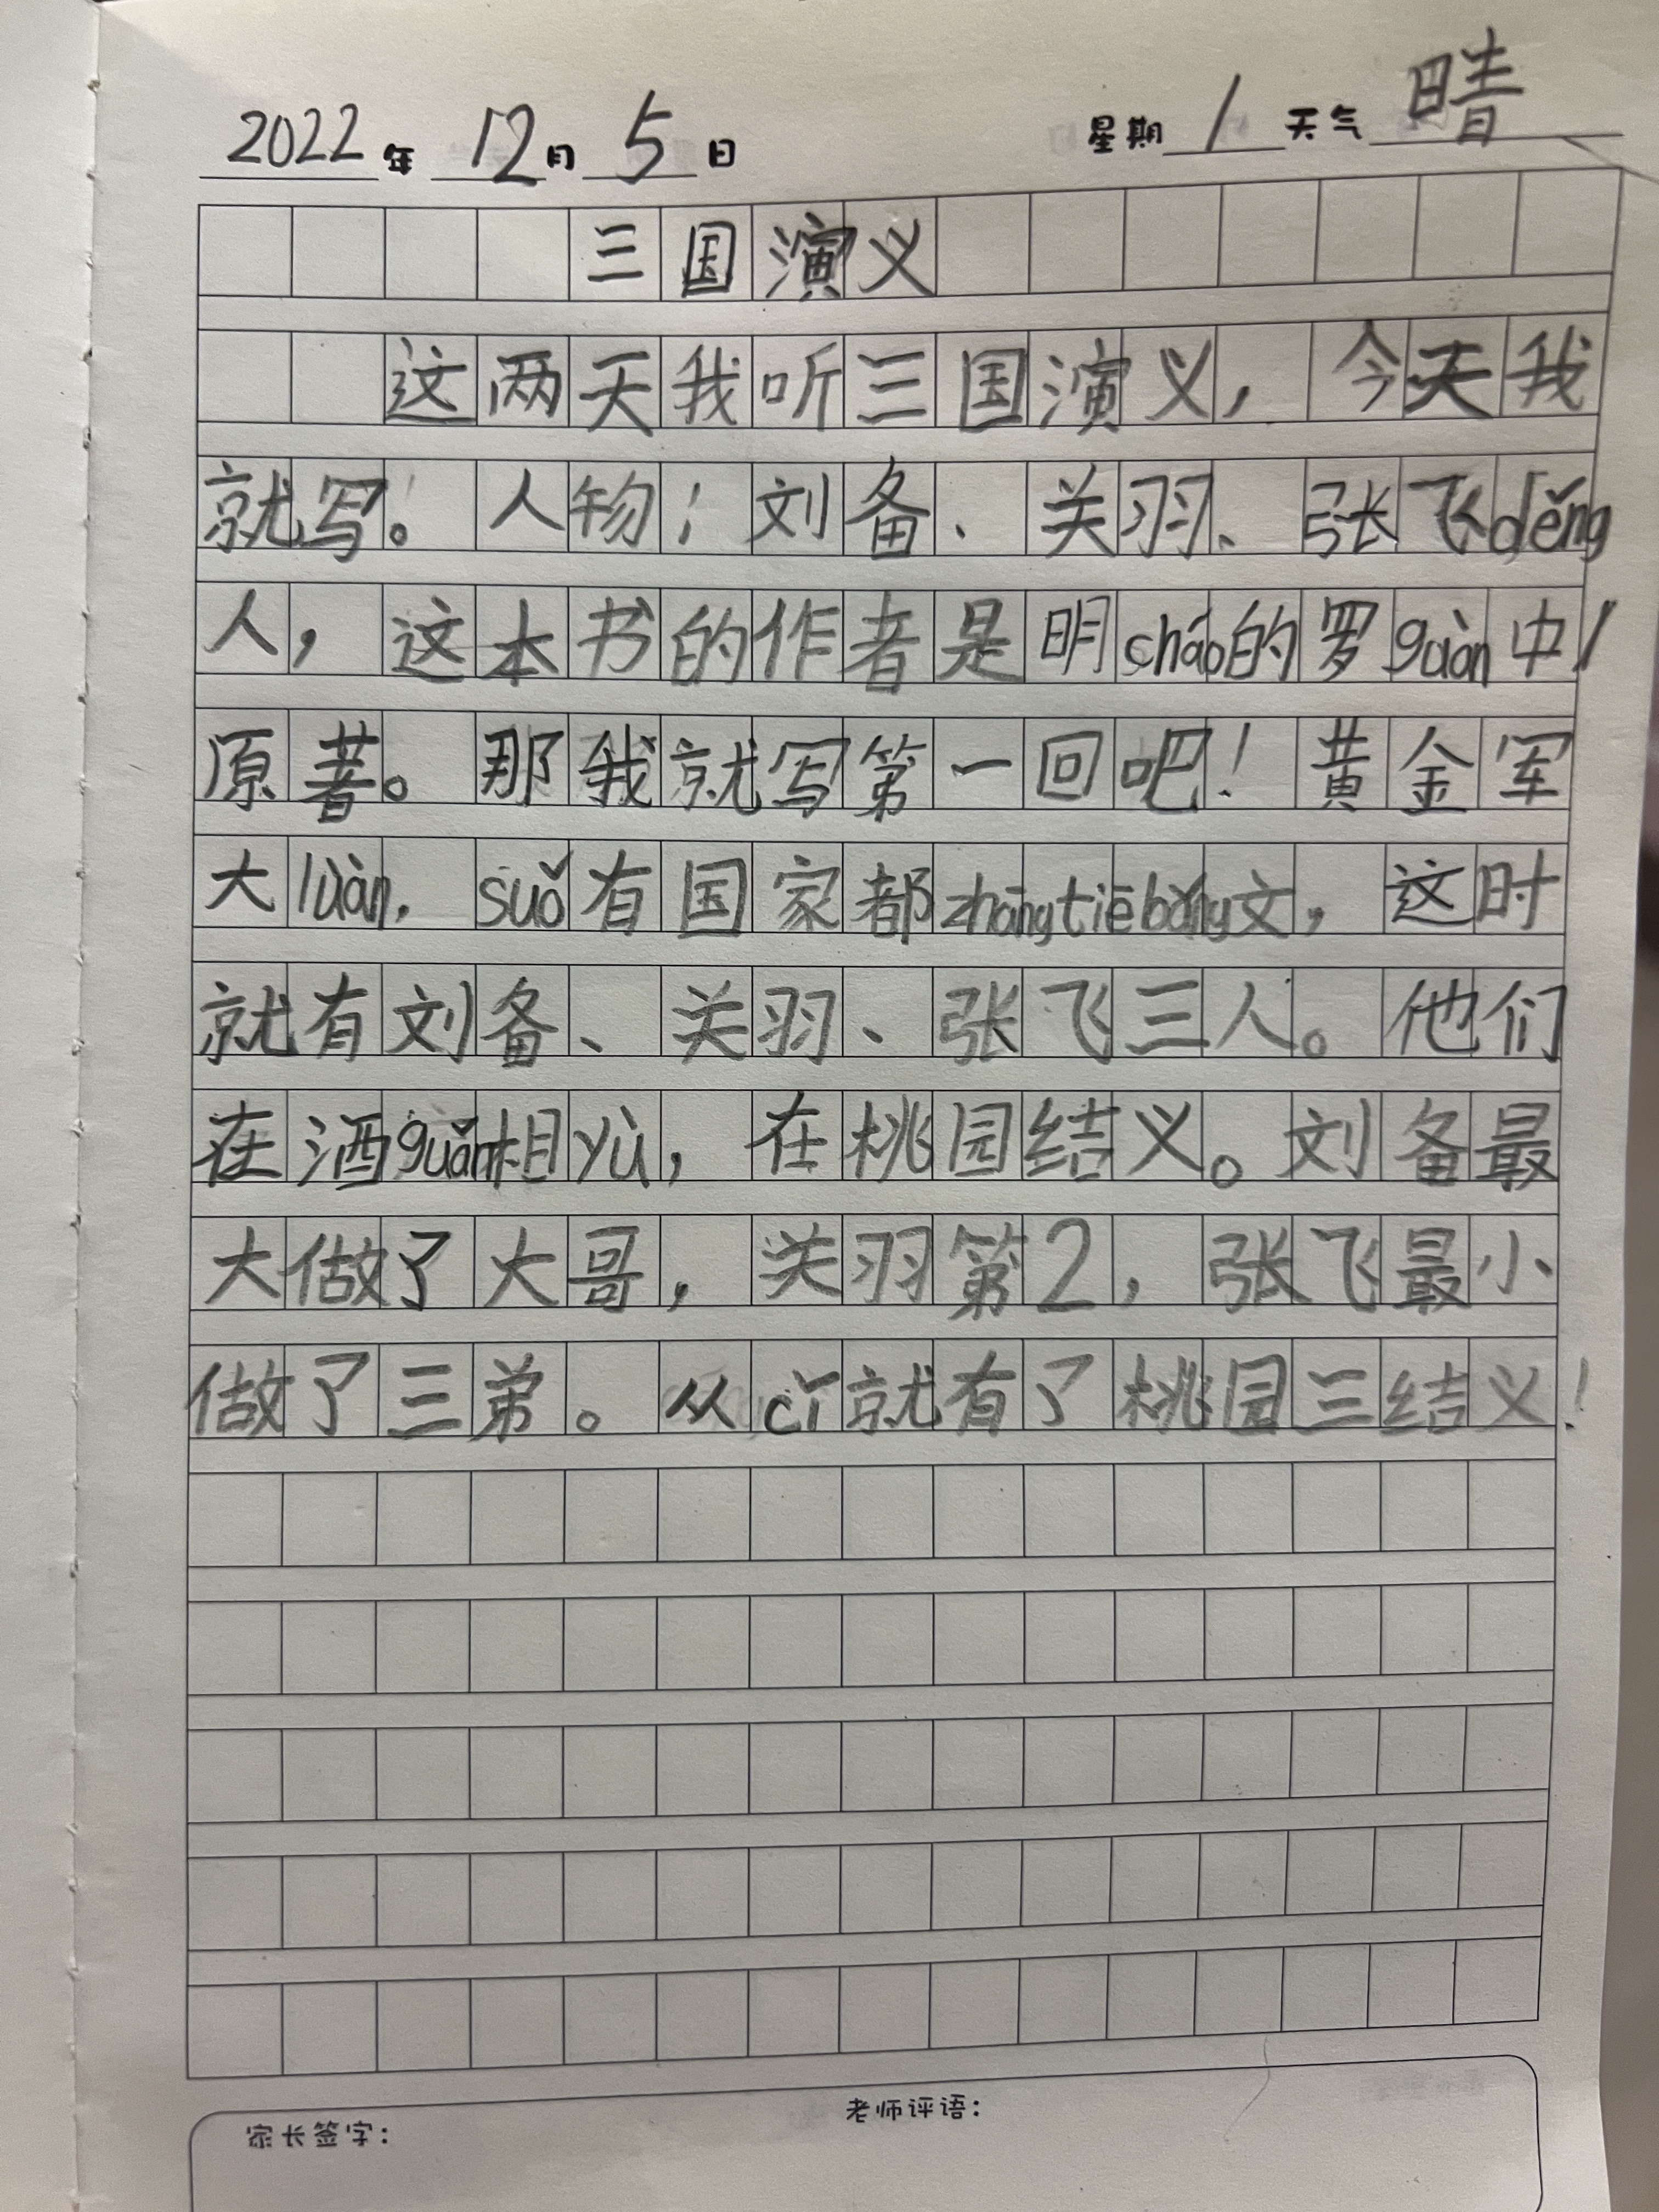 2022年 12月 5日 星期1 天气晴
三国演义
这两天我听三国演义，今天我
就写。人物；刘备、关羽、张飞děng
人，这本书的作者是明cháo的罗guàn中/
原著。那我就写第一回吧！黄金军
大luàn，suǒ有国家都zhāngtiēbǎng文，这时
就有刘备、关羽、张飞三人。他们
在酒guǎn相yù，在桃园结义。刘备最
大做了大哥，关羽第2，张飞最小
做了三弟。从cǐ就有了桃园三结义！
家长签字：
老师评语：